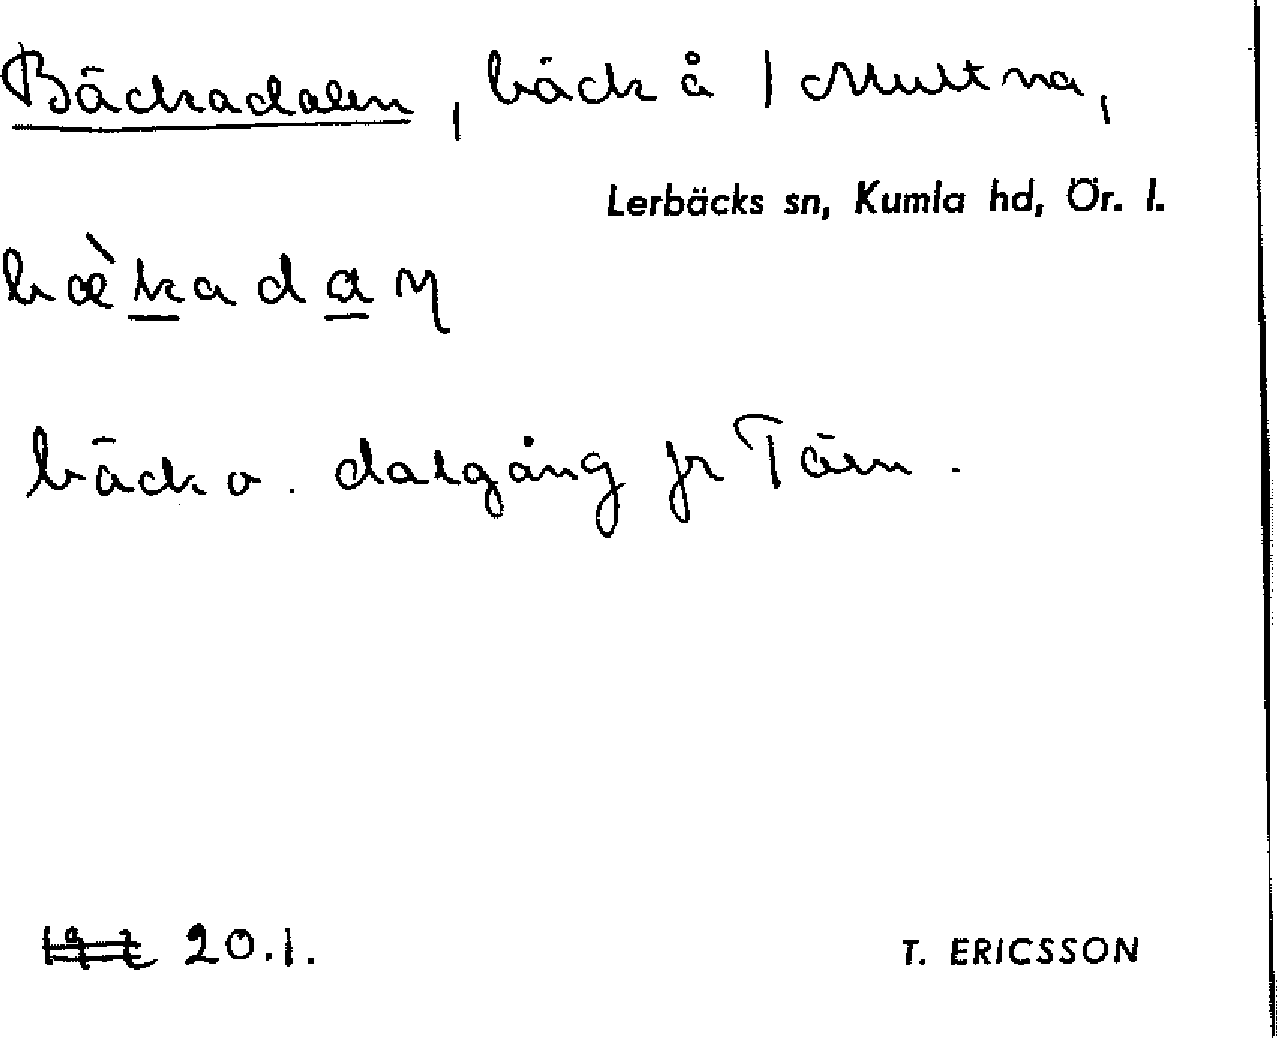 Bäckadalen, bäck å / Multna,
Lerbäcks sn, Kumla hd, Ör. l.
bæ̀kadaɳ
bäck o. dalgång fr Tärn.
20.1.
T. ERICSSON